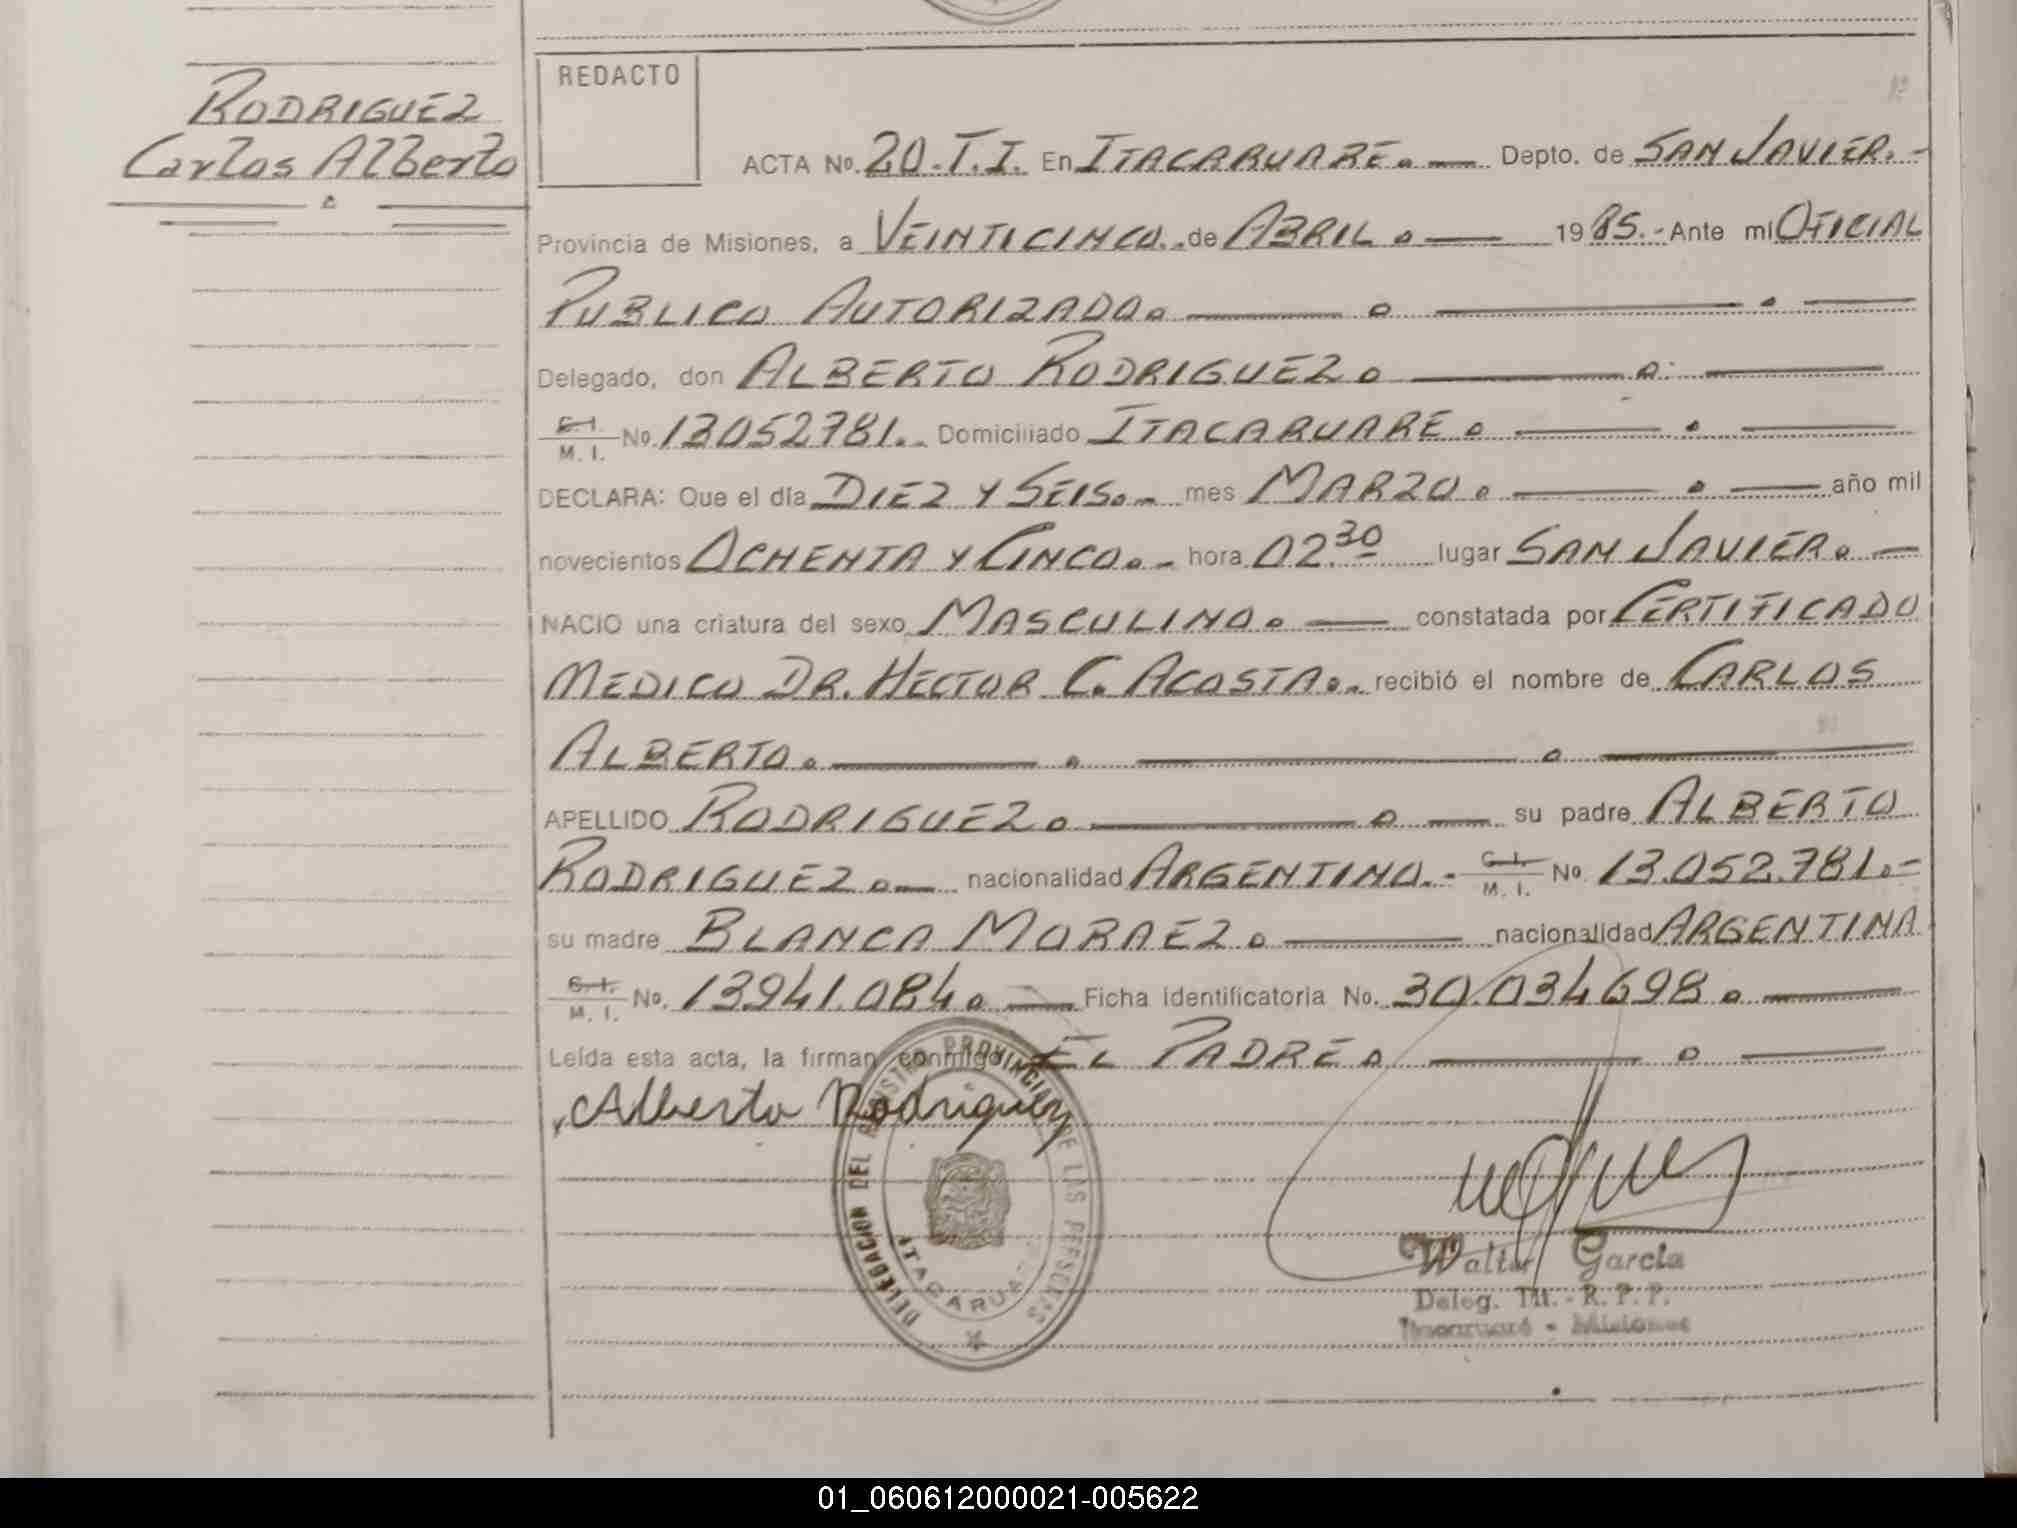 RODRIGUEZ
Carlos Alberto
REDACTO
ACTA No. 20.T.I. En ITACARUARE. Depto. de SAN JAVIER.-
Provincia de Misiones, a VEINTICINCO. de ABRIL 1985.- Ante mi OFICIAL
PUBLICO AUTORIZADO.
Delegado, don ALBERTO RODRIGUEZ
C.I. M.I. No. 13052781. Domiciliado ITACARUARE
DECLARA: Que el día DIEZ Y SEIS.- mes MARZO. año mil
novecientos OCHENTA Y CINCO.- hora 02.30 lugar SAN JAVIER.
NACIO una criatura del sexo MASCULINO. constatada por CERTIFICADO
MEDICO DR. HECTOR C. ACOSTA.- recibió el nombre de CARLOS
ALBERTO.
APELLIDO RODRIGUEZ su padre ALBERTO
RODRIGUEZ nacionalidad ARGENTINO.- C.I. M.I. No. 13.052.781.-
su madre BLANCA MORAEZ nacionalidad ARGENTINA
C.I. M.I. No. 13941.084 Ficha identificatoria No. 30.034698
Leída esta acta, la firman conmigo EL PADRE
Alberto Rodriguez
DELEGACION DEL REGISTRO PROVINCIAL DE LAS PERSONAS
ITACARUARE
Walter Garcia
Deleg. Tit. - R. P. P.
Itacaruaré - Misiones
01_060612000021-005622